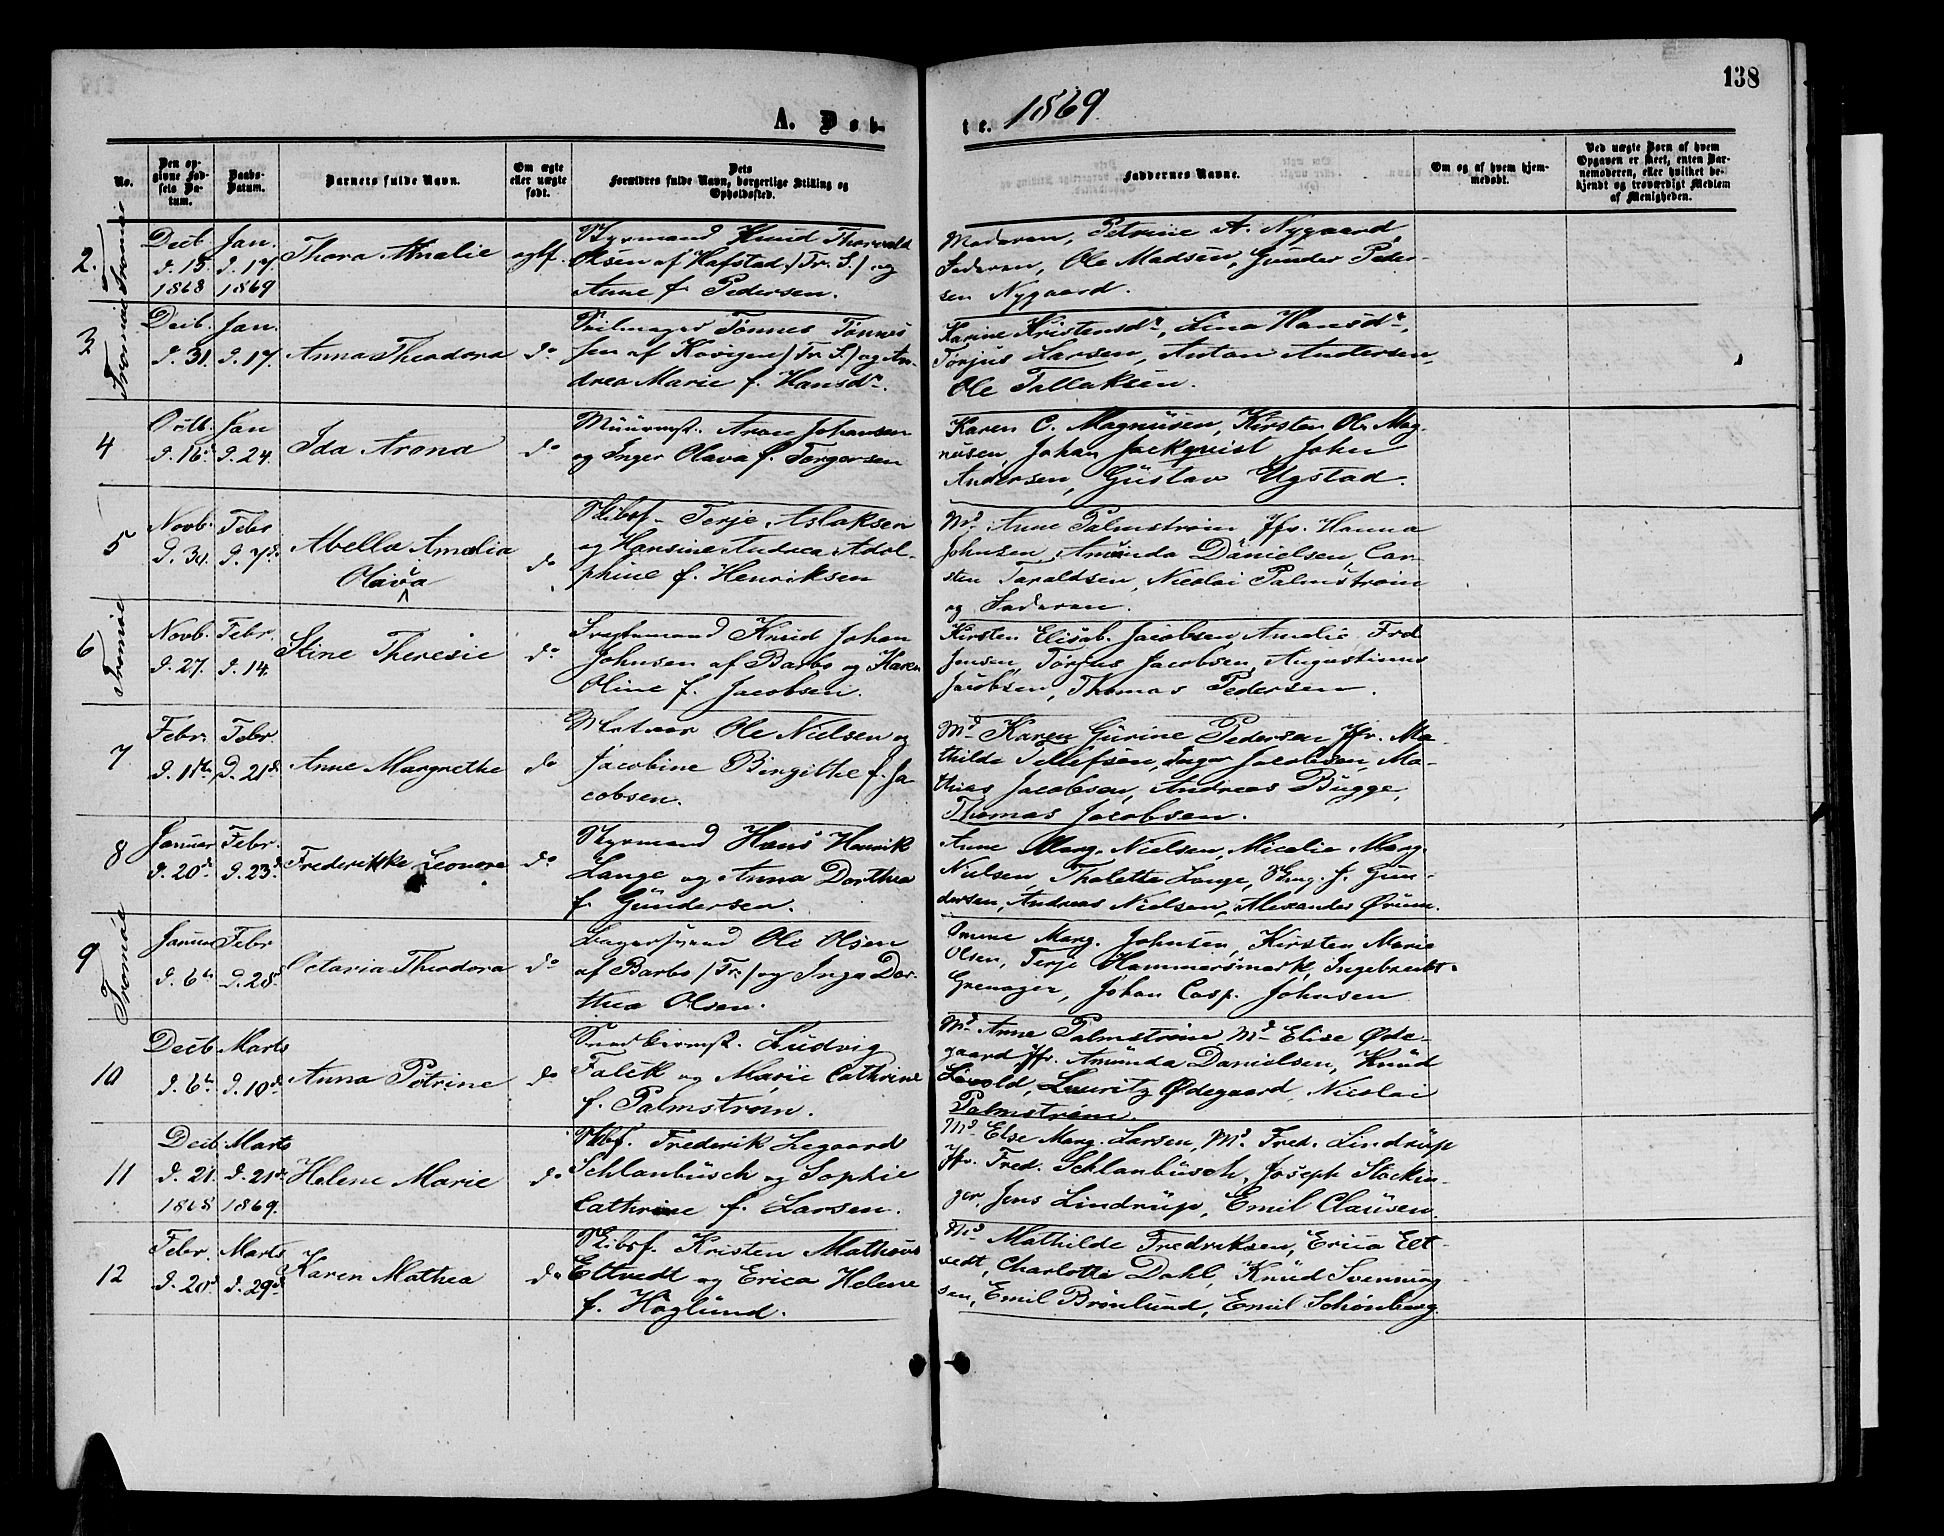 138
A. Døb-
te. 1869.
No.
Den op-
givne Fød-
sels Da-
tum.
Daabs-
Datum.
Barnets fulde Navn.
Om ægte
eller uægte
født.
Dets
Forældres fulde Navn, borgerlige Stilling og
Opholdssted.
Faddernes Navne.
Om og af hvem hjem-
medøbt.
Ved uægte Børn af hvem
Opgaven er skeet, enten Bar-
nemoderen, eller hvilket be-
kjendt og troværdigt Medlem
af Menigheden.
2. Tromøe
Decb. d. 15 1868
Jan. d. 17. 1869
Thora Amalie
ægtf.
Styrmand Knud Thorvald
Olsen af Hafstad (Tr. S.) og
Anne f. Pedersen.
Moderen, Petrine A. Nygaard
Faderen, Ole Madsen, Gunder Peder-
sen Nygaard.
3 Tromøe
Decb. d. 31.
Jan. d. 17.
Anna Theodora
do
Seilmager Tønnes Tønnes
sen af Kovigen (Tr. S.) og An-
drea Marie f. Hansdr.
Karine Kristensdr, Lina Hansdr,
Tørjus Larsen, Anton Andersen,
Ole Tallaksen.
4
Octb. d. 16
Jan d. 24.
Ida Arona
do
Muurmst. Aron Johansen
og Inger Olava f. Torgersen
Karen C. Magnusen, Kirsten Ol. Mag-
nusen, Johan Jackqvist, John
Andersen, Gustav Ugstad.
5
Novb. d. 30.
Febr d. 7de
Abella Amalia
Olava
do
Skibsf. Terje Aslaksen
og Hansine Andrea Adol-
phine f. Henriksen
Md. Anne Palmstrøm Jfr. Hanna
Johnsen, Amunda Danielsen, Car-
sten Taraldsen, Nicolai Palmstrøm
og Faderen.
6 Tromøe
Novb. d. 27.
Febr. d. 14.
Stine Theresie
do
Fragtemand Knud Johan
Johnsen af Barbo og Karen
Oline f. Jacobsen.
Kirsten Elisab. Jacobsen, Amalie Frd.
Jensen, Tørjus Jacobsen, Augustinus
Jacobsen, Thomas Pedersen.
7
Febr. d. 1ste
Febr. D. 21de
Anne Margrethe
do
Matros Ole Nielsen og
Jacobine Birgithe f. Ja
cobsen.
Md Karen Gurine Pedersen Jfr. Ma-
thilde Tellefsen, Inger Jacobsen, Ma-
thias Jacobsen, Andreas Bugge,
Thomas Jacobsen.
8
Januar d. 20de
Febr. d. 23de
Frederikke Leonora
do
Styrmand Hans Henrik
Lange og Anna Dorthea
f. Gundersen.
Anne Marg. Nielsen, Micalie Marg.
Nielsen, Thalette Lange, f. Gun-
dersen, Andreas Nielsen, Alexander Ørum.
9 Tromøe
Januar d. 6te
Febr d. 28.
Octavia Theodora
do
Ole Olsen
af Barbo (Tr.) og Inga Dor-
thea Olsen.
Marg. Johnsen, Kirsten Marie
Olsen, Terje Hammersmark, Ingebrecht
Grenager, Johan Casp. Johnsen
10
Decb d. 6te
Marts d. 10de
Anna Petrine
do
Snedkermst. Ludvig
Falck og Marie Cathrine
f. Palmstrøm.
Md. Anne Palmstrøm, Md Elise Øde-
gaard Jfr. Amunda Danielsen, Knud
Livold, Lauritz Ødegaard, Nicolai
Palmstrøm.
11
Decb d. 21. 1868
Marts d. 21de 1869.
Helene Marie
do
Skbf. Frederik Legaard
Schlanbusch og Sophie
Cathrine f. Larsen.
Md. Else Marg. Larsen, Md. Fred. Lindrup
Jfr. Fred. Schlanbusch, Joseph Stockin-
ger, Jens Lindrup, Emil Clausen.
12
Febr. d. 20de
Marts d. 29de
Karen Mathea
do
Skibsf. Kristen Mathæus
Eltvedt og Erica Helene
f. Høglund.
Md Mathilde Fredriksen, Erica Elt-
vedt, Charlotte Dahl, Knud Svenning
sen, Emil Brønlund, Emil Schønberg.